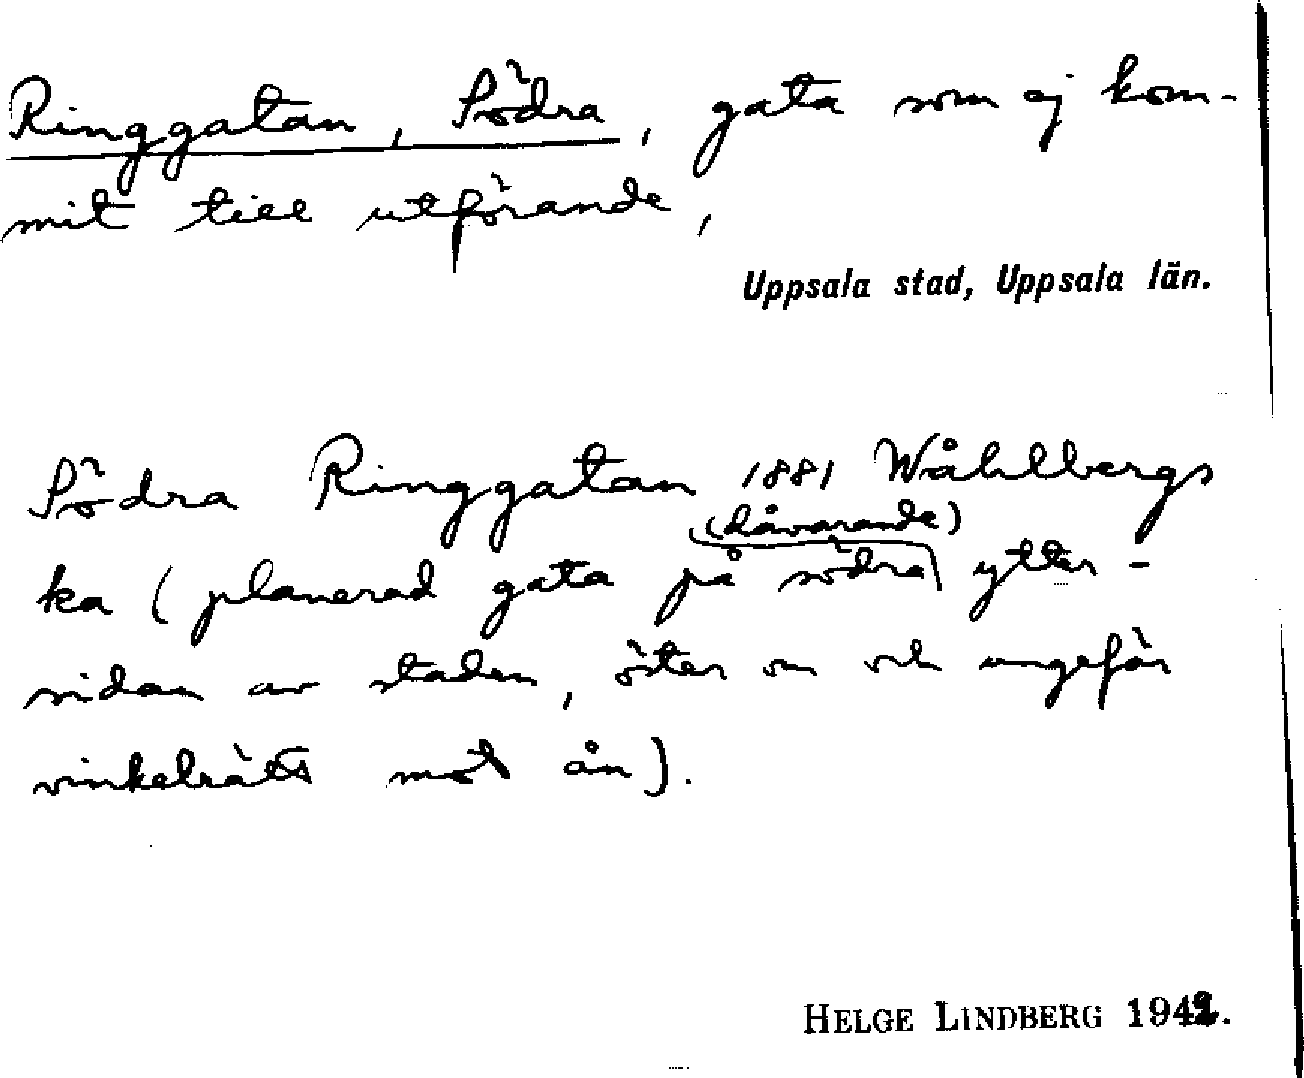 Ringgatan, Södra, gata som ej kom-
mit till utförande,
Uppsala stad, Uppsala län.
Södra Ringgatan 1881 Wåhlbergs
(dåvarande)
ka (planerad gata på södra ytter-
sidan av staden, öster om och ungefär
vinkelrätt mot ån).
HELGE LINDBERG 1942.